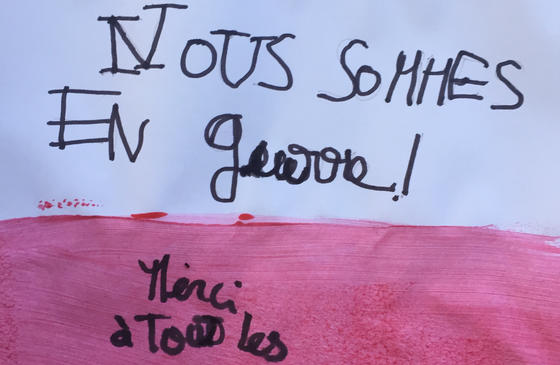 NOUS SOMMES
EN guerre!
Merci
à TOUT les